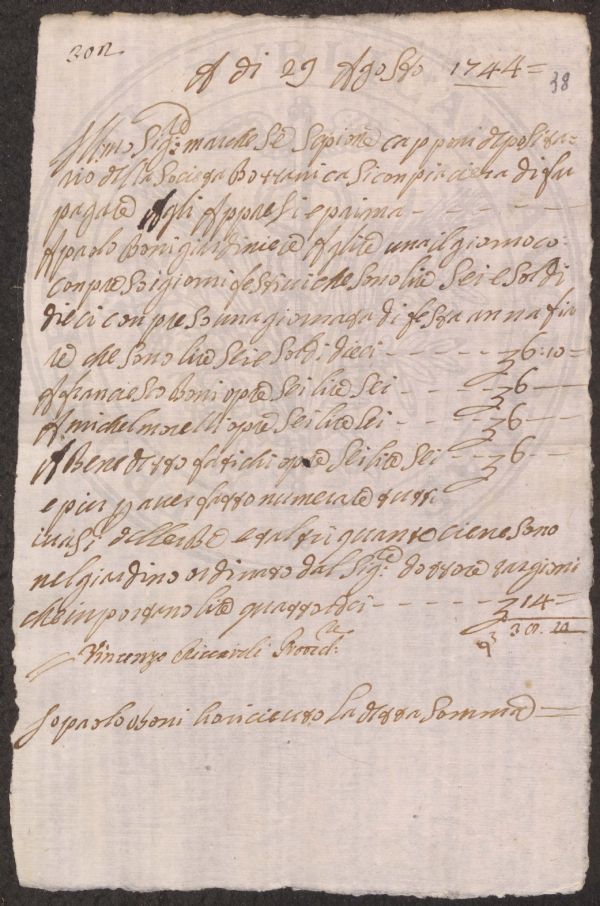 302
A di 29 Agosto 1744=
38
Ill:mo Sig:re marchese Scipione capponi deposita=
rio della Società Bottanica si conpiacierà di far
pagare Agli Appresi e prima
A paolo Boni giardiniere A lire una il giorno co:
conpreso i giorni festivi che sono lire sei e soldi
dieci conpreso una giornata di festa annafia
re che sono lire sei e soldi dieci 6:10
A franciesco Boni opre sei lire sei 6
A michel morelli opre sei lire sei 6
A Benedetto opre sei lire sei 6
e piu p aver fatto numerare tutti
i vasi delle erbe e altri quante ciene sono
nel giardino ordinato dal Sig:re dottore targioni
che inportano lire quattordici 14
38.10
Vincenzo Riccardi Proved:re
Io paolo Boni ho riceuto la detta somma